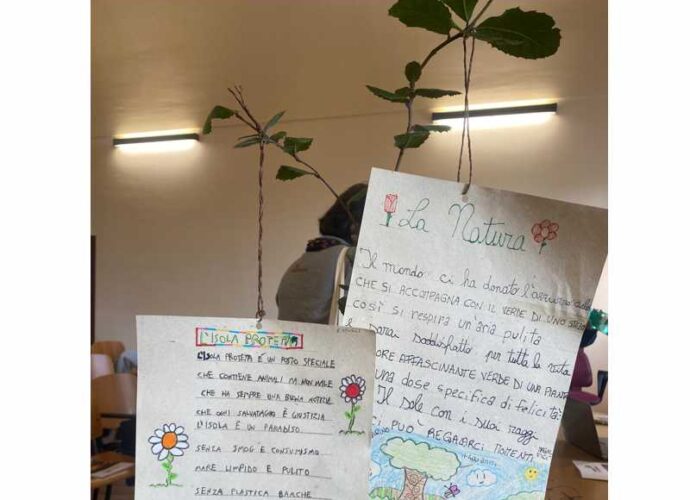 La Natura
Il mondo ci ha donato l'azzurro
CHE SI ACCOMPAGNA CON IL VERDE DI UNO
così si respira un'aria pulita
sarai soddisfatto per tutta la vita
AFFASCINANTE VERDE DI UNA PIANTA
una dose specifica di felicità
Il sole con i suoi raggi
CI PUÒ REGALARCI MOMENTI
L'ISOLA PROTETTA
L'ISOLA PROTETTA È UN POSTO SPECIALE
CHE CONTIENE ANIMALI MA NON MALE
CHE HA SEMPRE UNA BUONA NOTIZIA
CHE OGNI SALVATAGGIO È GIUSTIZIA
L'ISOLA È UN PARADISO
SENZA SMOG E CONSUMISMO
MARE LIMPIDO E PULITO
SENZA PLASTICA